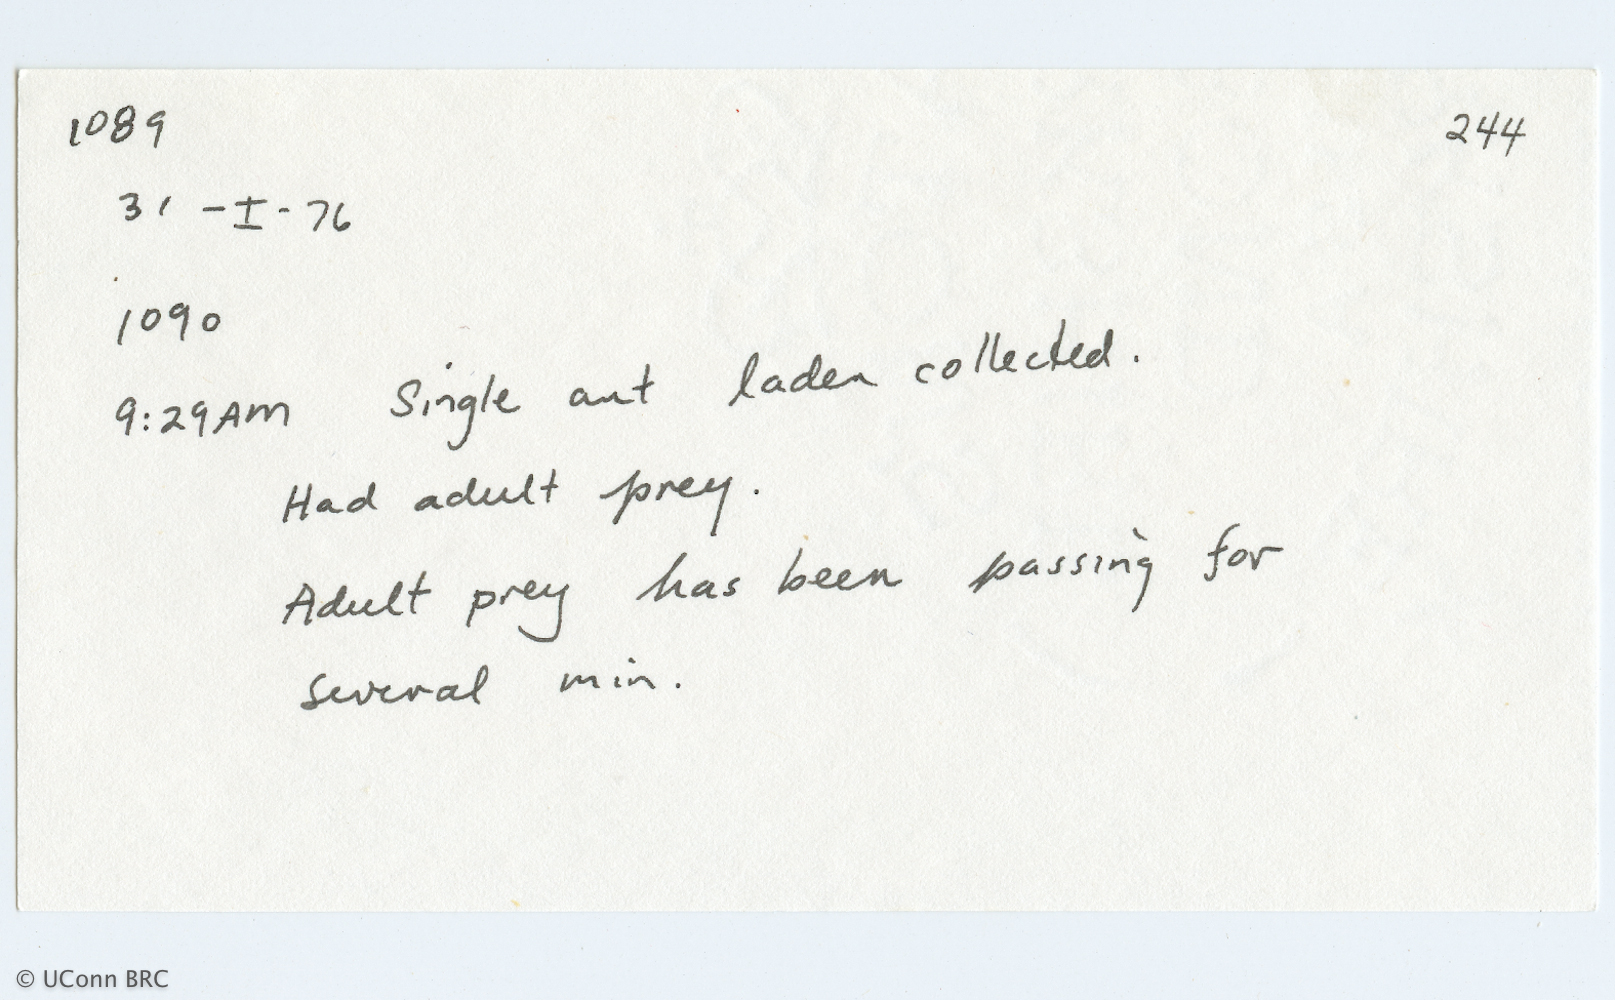 1089
244
31 -I- 76
1090
9:29AM Single ant laden collected.
Had adult prey.
Adult prey has been passing for
several min.
© UConn BRC